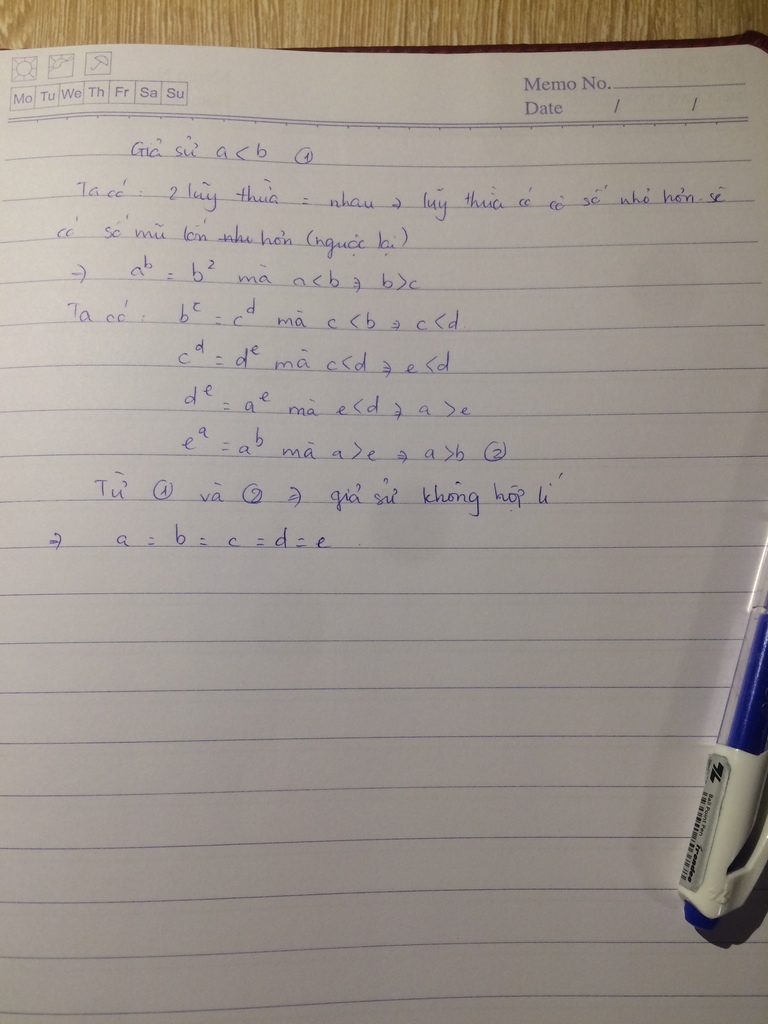 Mo Tu We Th Fr Sa Su
Memo No.
Date / /
Giả sử a < b ①
Ta có : 2 luỹ thừa = nhau → luỹ thừa có cơ số nhỏ hơn sẽ
có số mũ lớn như hơn (ngược lại)
⇒ a^b = b^2 mà a<b ⇒ b>c
Ta có : b^c = c^d mà c<b ⇒ c<d
c^d = d^e mà c<d ⇒ e<d
d^e = a^e mà e<d ⇒ a>e
e^a = a^b mà a>e ⇒ a>b ②
Từ ① và ② ⇒ giả sử không hợp lí
⇒ a = b = c = d = e.
Ball Point Pen